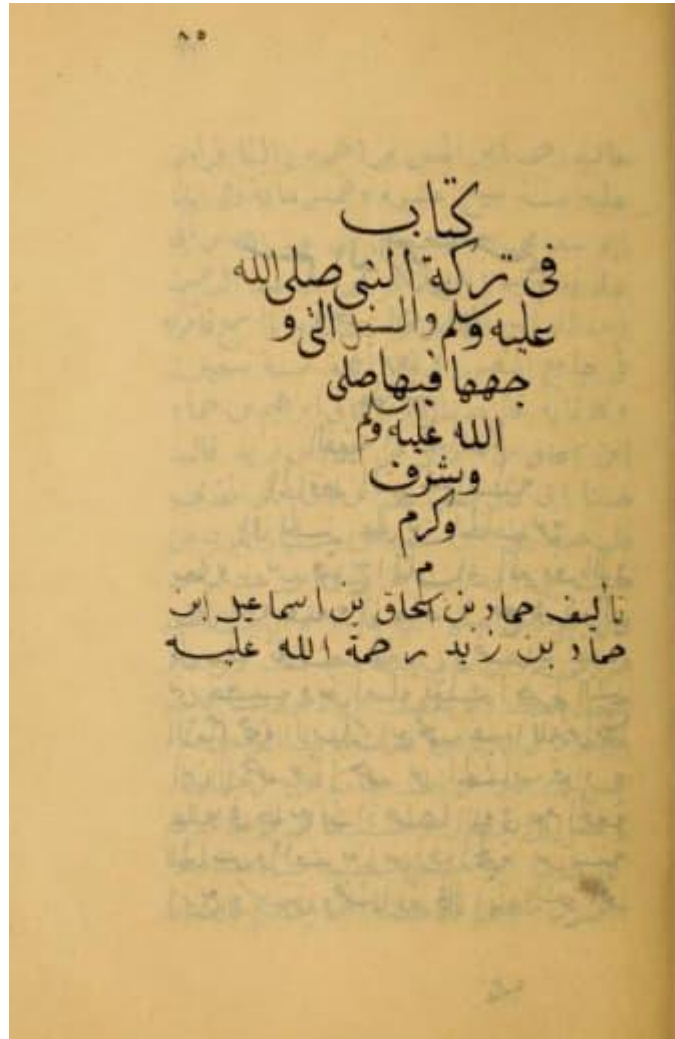 ٨٥
كتاب
فى تركة النبى صلى الله
عليه وسلم والسبل التى و
جهها فيها صلى
الله عليه وسلم
وشرف
وكرم
م
تأليف حماد بن اسحاق بن اسماعيل ابن
حماد بن زيد رحمة الله عليه